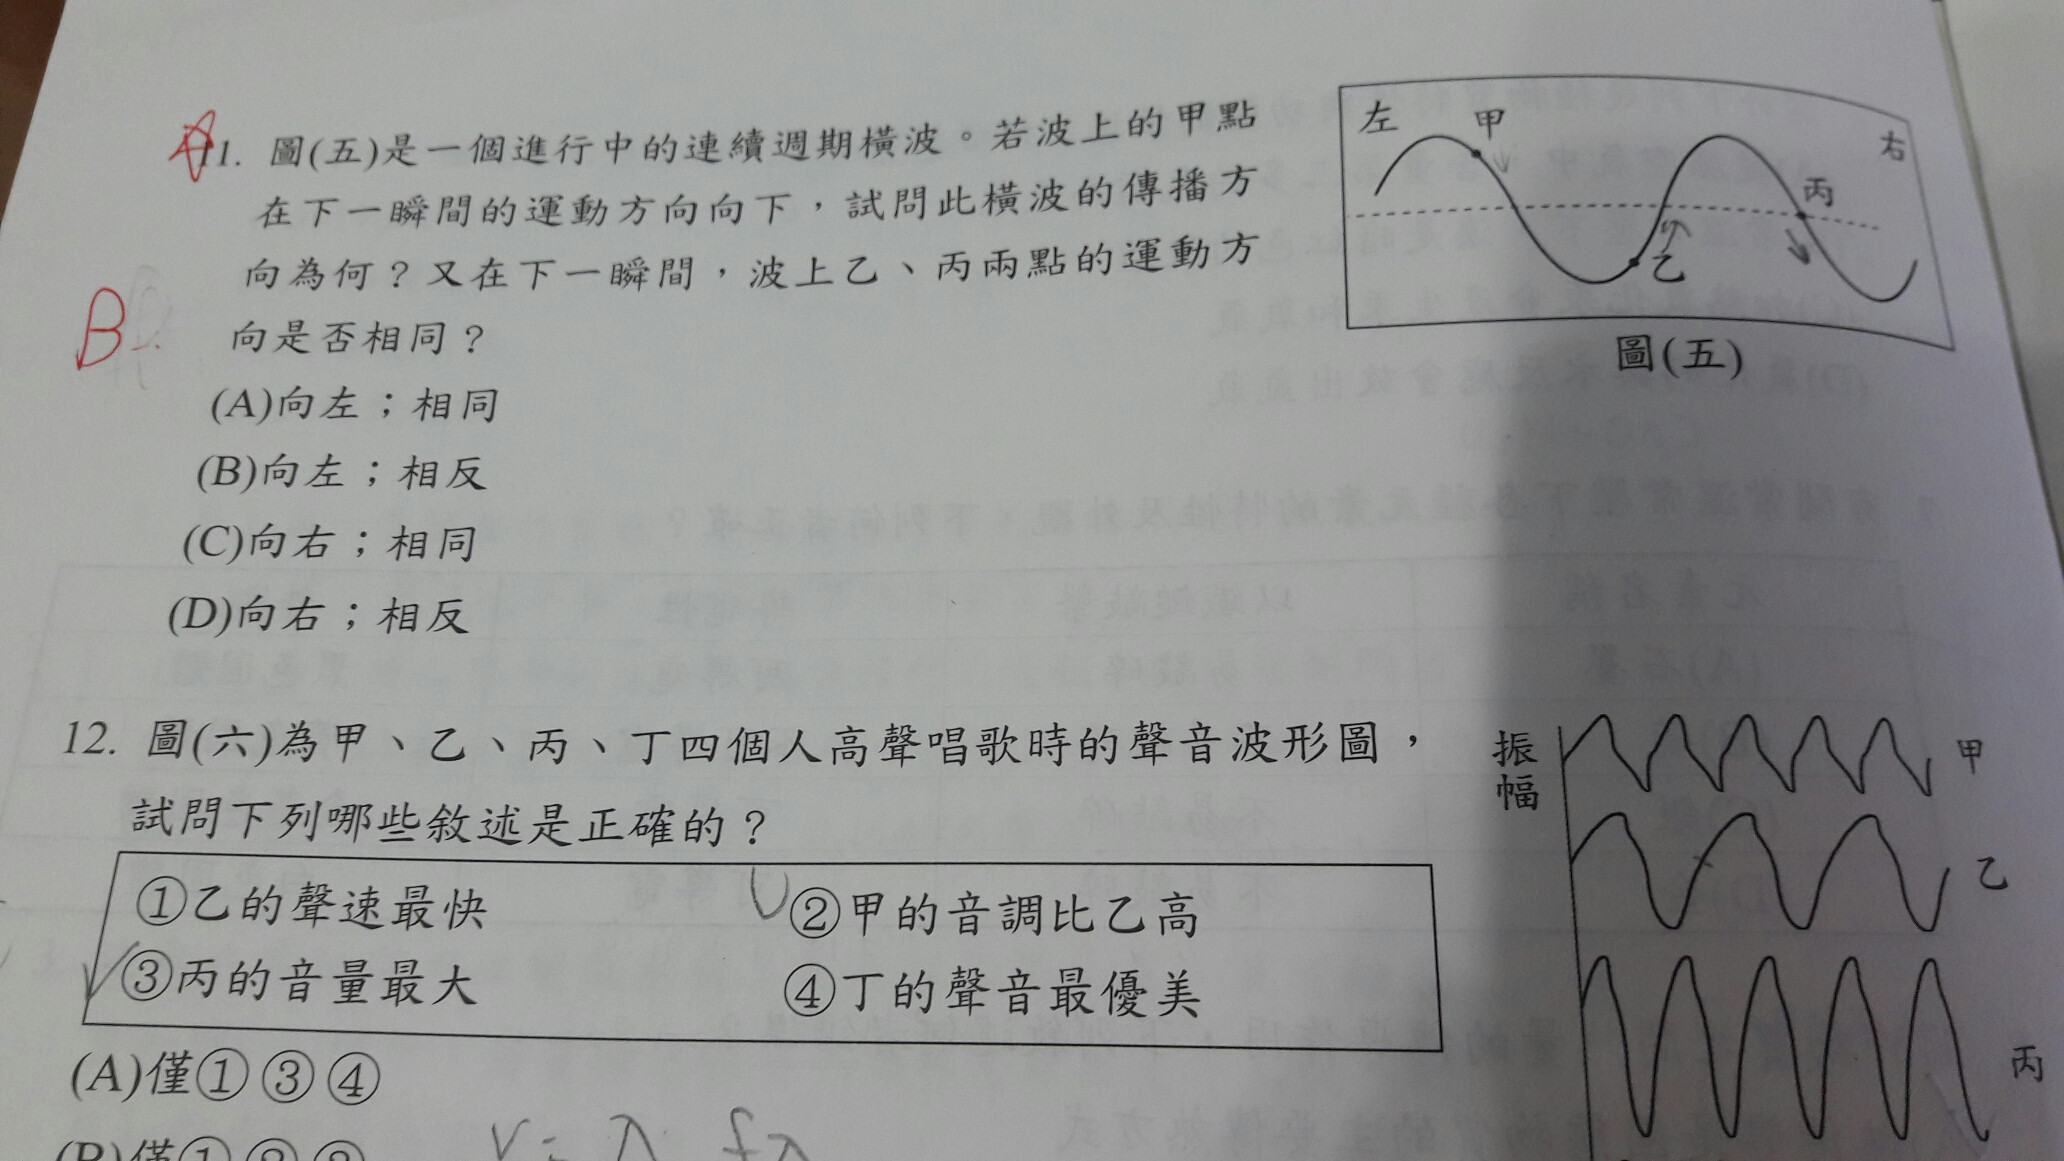 11. 圖(五)是一個進行中的連續週期橫波。若波上的甲點
在下一瞬間的運動方向向下，試問此橫波的傳播方
向為何？又在下一瞬間，波上乙、丙兩點的運動方
向是否相同？
B
(A)向左；相同
(B)向左；相反
(C)向右；相同
(D)向右；相反
左
甲
右
丙
乙
圖(五)
12. 圖(六)為甲、乙、丙、丁四個人高聲唱歌時的聲音波形圖，
試問下列哪些敘述是正確的？
①乙的聲速最快 ②甲的音調比乙高
③丙的音量最大 ④丁的聲音最優美
(A)僅①③④
(B)僅①②③
振幅
甲
乙
丙